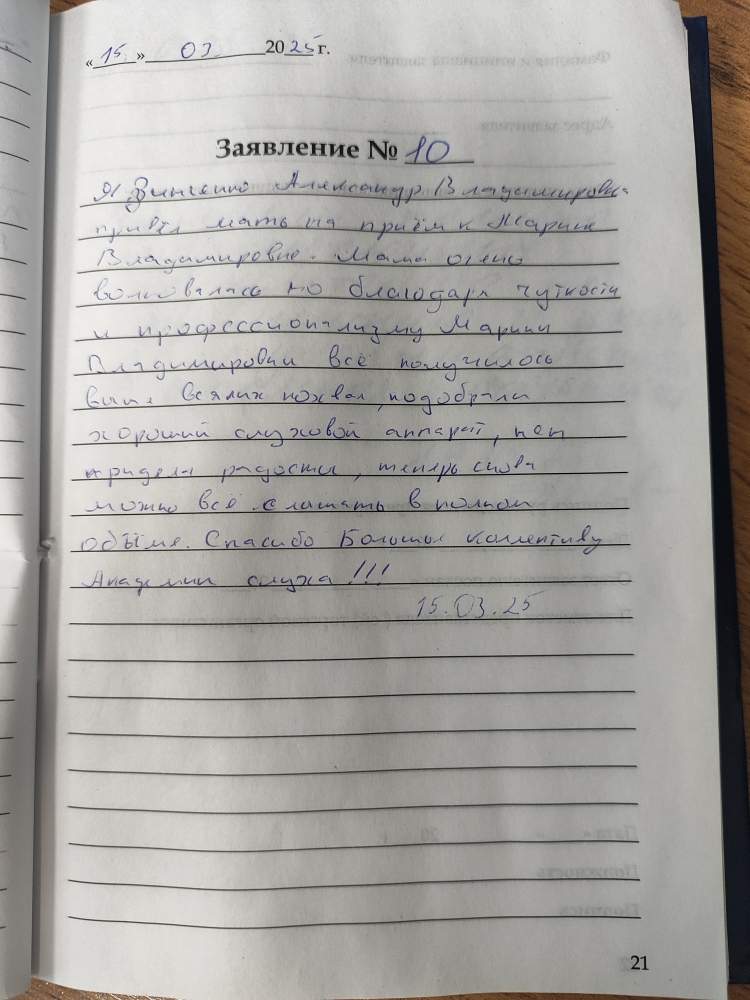 «15» 03 2025 г.
Заявление № 10
Я Зинченко Александр Владимирович
привёл мать на приём к Марине
Владимировне. Мама очень
волновалась но благодаря чуткости
и профессионализму Марины
Владимировны всё получилось
выше всяких похвал, подобрали
хороший слуховой аппарат, нет
предела радости, теперь снова
можно всё слышать в полном
объёме. Спасибо Большое Коллективу
Академии слуха!!!
15.03.25
21